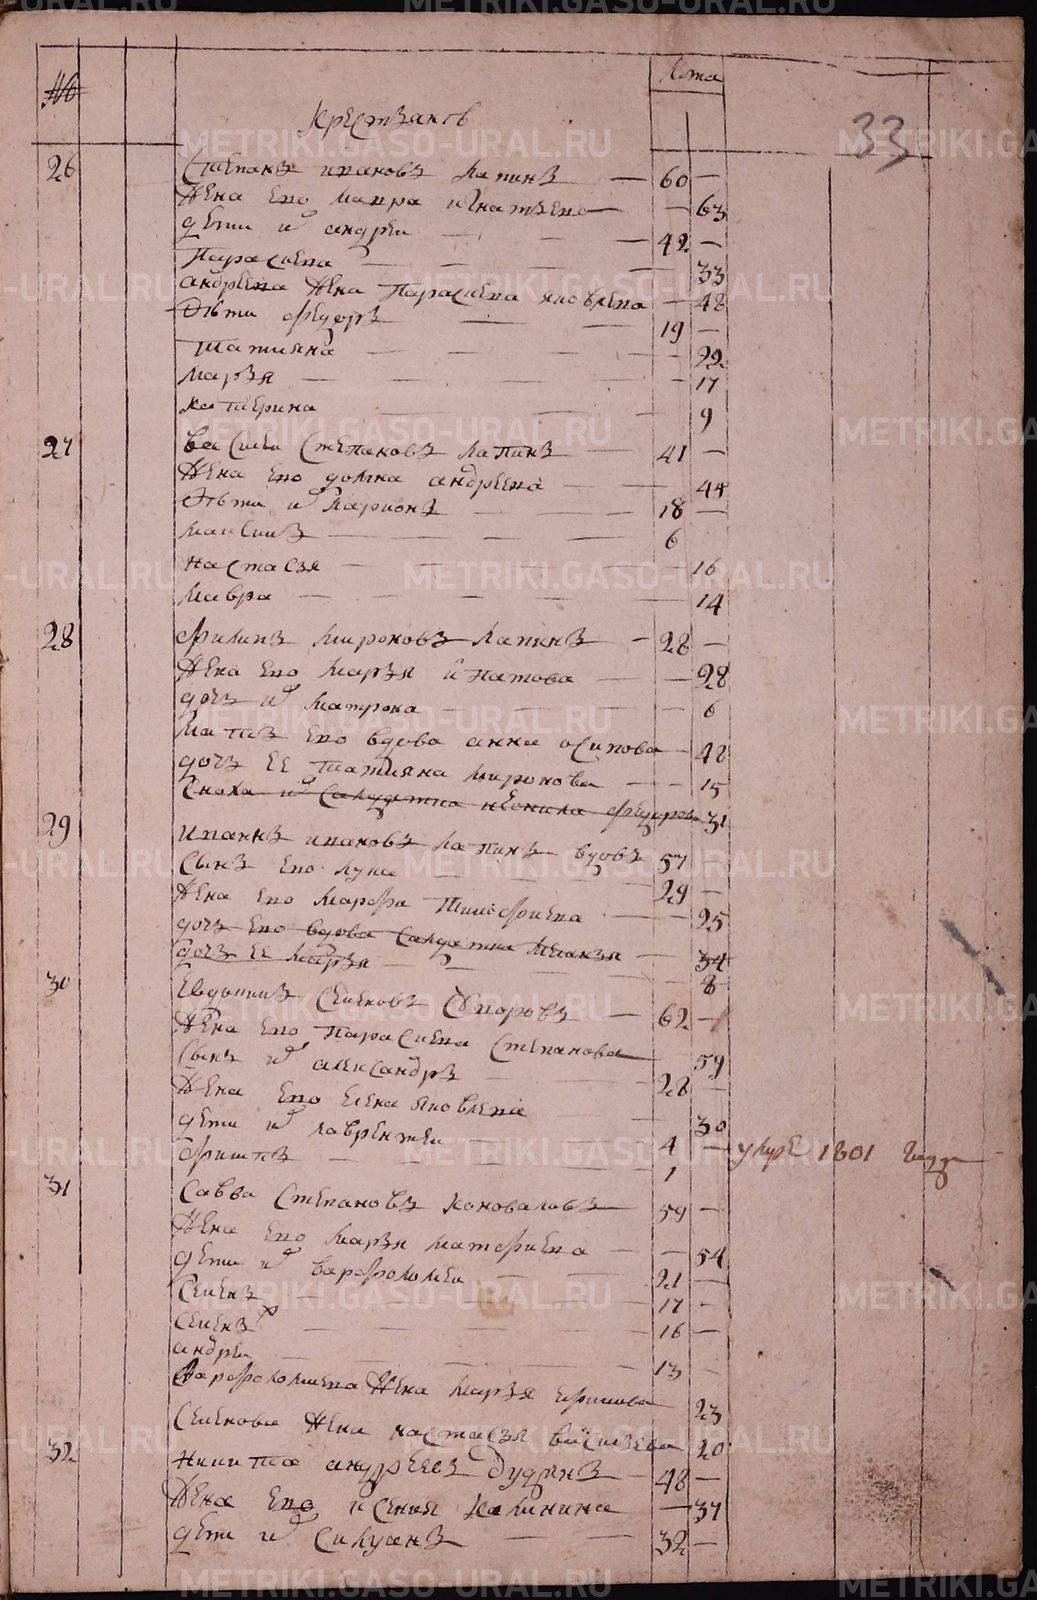 № Лѣта
33
крестьянов
26 Степанъ ивановъ лапинъ — 60 —
жена ево мавра игнатьева — — 63
дети их андреи — 42 —
парасцева — 33
андреева жена парасцева яковлева — 48
дѣти федоръ — 19 —
татияна — 22
марья — 17
катерина — 9
27 василеи степановъ лапинъ — 41 —
жена ево домна андреева — 44
дѣти их ларионъ — 18 —
максимъ — 6
настасья — 16
мавра — 14
28 филипъ мироновъ лапинъ — 28 —
жена ево марья ипатова — — 28
дочь их матрона — 6
мать ево вдова анна осипова — 48
дочь ее татияна миронова — 15
сноха их салдатка неонила федорова 31
29 иванъ ивановъ лапинъ вдовъ 57
сынъ ево лука 29 —
жена ево марфа тимофиева — 25
дочь ево вдова салдатка меланья — 34
дочь ее марья — 8
30 евдокимъ семеновъ суворовъ — 62 —
жена ево парасцева степанова 59
сынъ их александръ — 28 —
жена ево елена яковлева 30
дети их лаврентеи — 4 — умре 1801 году
филипъ — 1
31 савва степановъ коноваловъ 59 —
жена ево марья матфиева — — 54
дети их варфоломеи — 21 —
семенъ — 17 —
семенъ — 16 —
андреи — 13 —
варфоломиева жена марья ефимова 23
семенова жена настасья васильева 20
32 никита андреевъ дудинъ — 48 —
жена ево ксения калинина — 37
дети их силуанъ — 32 —
METRIKI.GASO-URAL.RU